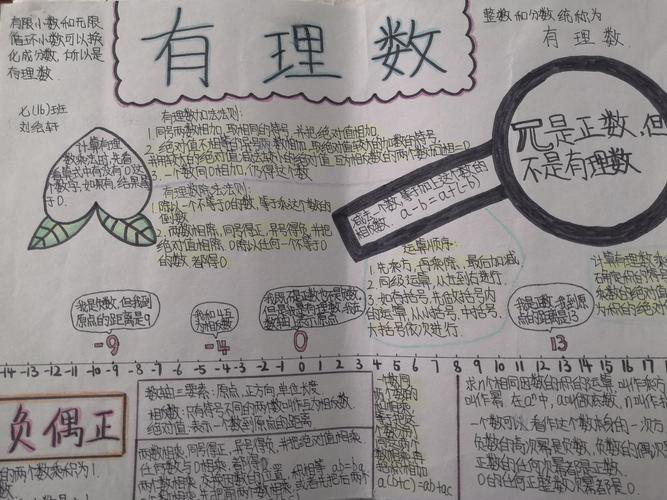 有限小数和无限
循环小数可以换
化成分数,所以是
有理数.
有理数
整数和分数统称为
有理数.
七(16)班
计算有理
数乘法时,先看
看算式中有没有0这
个数字,如果有,结果
是0.
有理数加法法则:
1.同号两数相加,取相同的符号,并把绝对值相加.
2.绝对值不相等的异号两数相加,取绝对值较大的加数的符号,
并用较大的绝对值减去较小的绝对值.互为相反数的两个数相加得=0.
3.一个数同0相加,仍得这个数.
有理数除法法则:
1.除以一个不等于0的数,等于乘这个数的
倒数.
2.两数相除,同号得正,异号得负,并把
绝对值相除.0除以任何一个不等于0
的数,都得0.
减去一个数,等于加上这个数的
相反数.
a-b=a+(-b)
π是正数,但
不是有理数
运算顺序:
1.先乘方,再乘除,最后加减.
2.同级运算,从左到右进行.
3.如有括号,先做括号内
的运算,从小括号、中括号、
大括号依次进行.
计算有理数
我是负数,但我到
原点的距离是9
-9
我和4互
为相反数
-4
我既不是正数也不是负数,
0
原点的距离是13
13
-14 -13 -12 -11 -10 -9 -8 -7 -6 -5 -4 -3 -2 -1 0 1 2 3 4 5 6 7 8 9 10 11 12 13 14 15 16 17
负偶正
的两个数乘积为1.
数轴三要素:原点,正方向,单位长度.
相反数:只有符号不同的两个数叫作互为相反数.
绝对值:表示一个数到原点的距离
两数相乘,同号得正,异号得负,并把绝对值相乘.
任何数与0相乘,都得0.
两数相乘,交换因数的位置,积相等 ab=ba
a(b+c)=ab+ac
求n个相同因数的积的运算,叫作乘方
叫作幂.在aⁿ中,a叫做底数,n叫作
一个数可以看作这个数本身的一次方
负数的奇次幂是负数,负数的偶次幂
正数的任何次幂都是正数.
0的任何正整数次幂都是0.